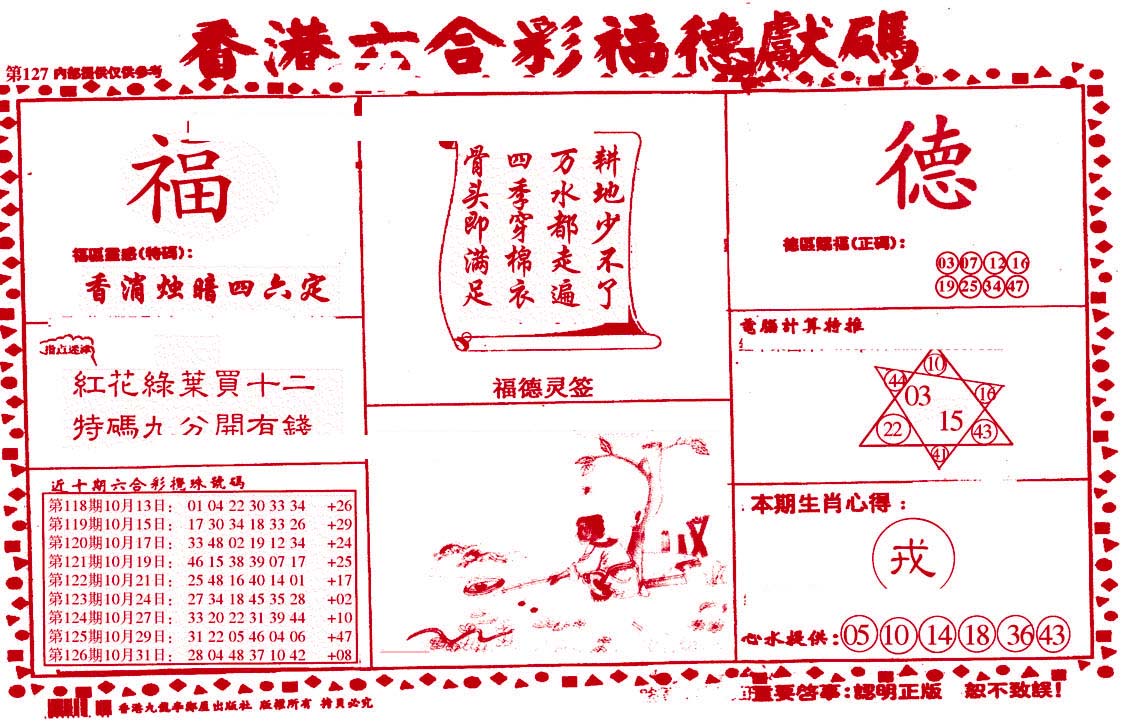 香港六合彩福德獻碼
第127 内部提供仅供参考
福
福區靈感(特碼):
香消烛暗四六定
指点迷津
紅花綠葉買十二
特碼九分開有錢
近十期六合彩攪珠號碼
第118期10月13日: 01 04 22 30 33 34 +26
第119期10月15日: 17 30 34 18 33 26 +29
第120期10月17日: 33 48 02 19 12 34 +24
第121期10月19日: 46 15 38 39 07 17 +25
第122期10月21日: 25 48 16 40 14 01 +17
第123期10月24日: 27 34 18 45 35 28 +02
第124期10月27日: 33 20 22 31 39 44 +10
第125期10月29日: 31 22 05 46 04 06 +47
第126期10月31日: 28 04 48 37 10 42 +08
耕地少不了
万水都走遍
四季穿棉衣
骨头即满足
福德灵签
德
德區賜福(正碼):
03 07 12 16
19 25 34 47
電腦計算特推
10
44
03
16
22
15
43
41
本期生肖心得:
戎
心水提供: 05 10 14 18 36 43
香港九龍 出版社 版權所有 拷貝必究
重要啓事:認明正版 恕不致誤!